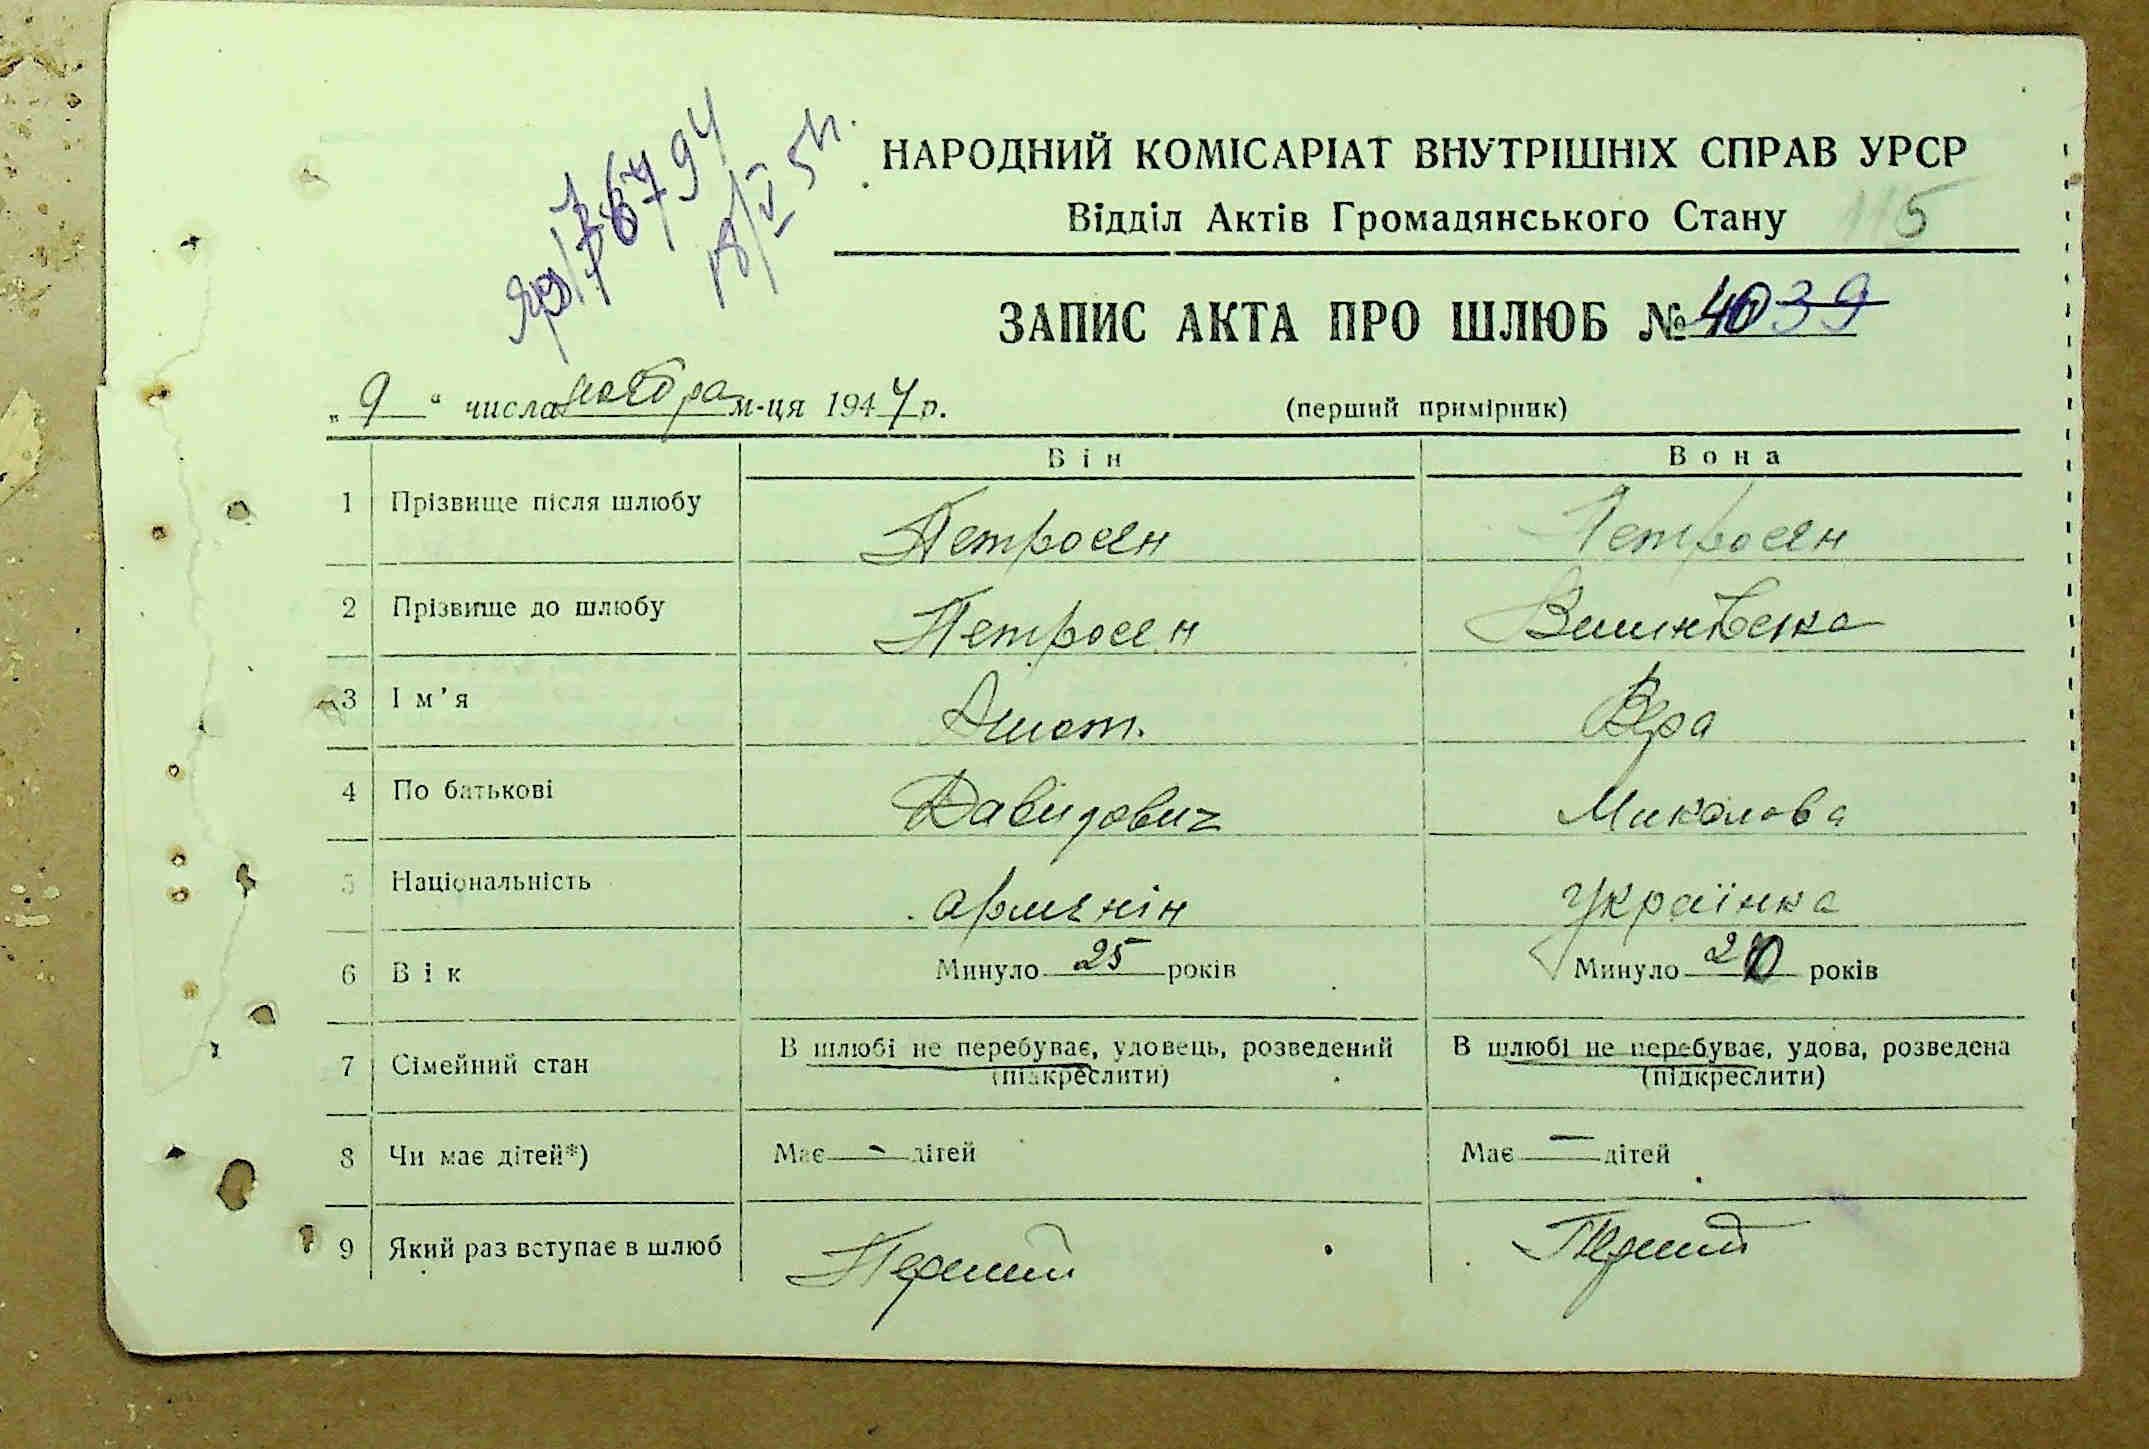 НАРОДНИЙ КОМІСАРІАТ ВНУТРІШНІХ СПРАВ УРСР
Відділ Актів Громадянського Стану 115
ЗАПИС АКТА ПРО ШЛЮБ № 40 39
„ 9 “ числа ноября м-ця 1944 р. (перший примірник)
Він Вона
1 Прізвище після шлюбу Петросян Петросян
2 Прізвище до шлюбу Петросян Вишнівська
3 Ім’я Ашот. Вера
4 По батькові Давидович Миколова
5 Національність армянін Українка
6 Вік Минуло 25 років Минуло 20 років
7 Сімейний стан В шлюбі не перебуває, удовець, розведений В шлюбі не перебуває, удова, розведена
(підкреслити) (підкреслити)
8 Чи має дітей*) Має - дітей Має — дітей
9 Який раз вступає в шлюб Перший Перший